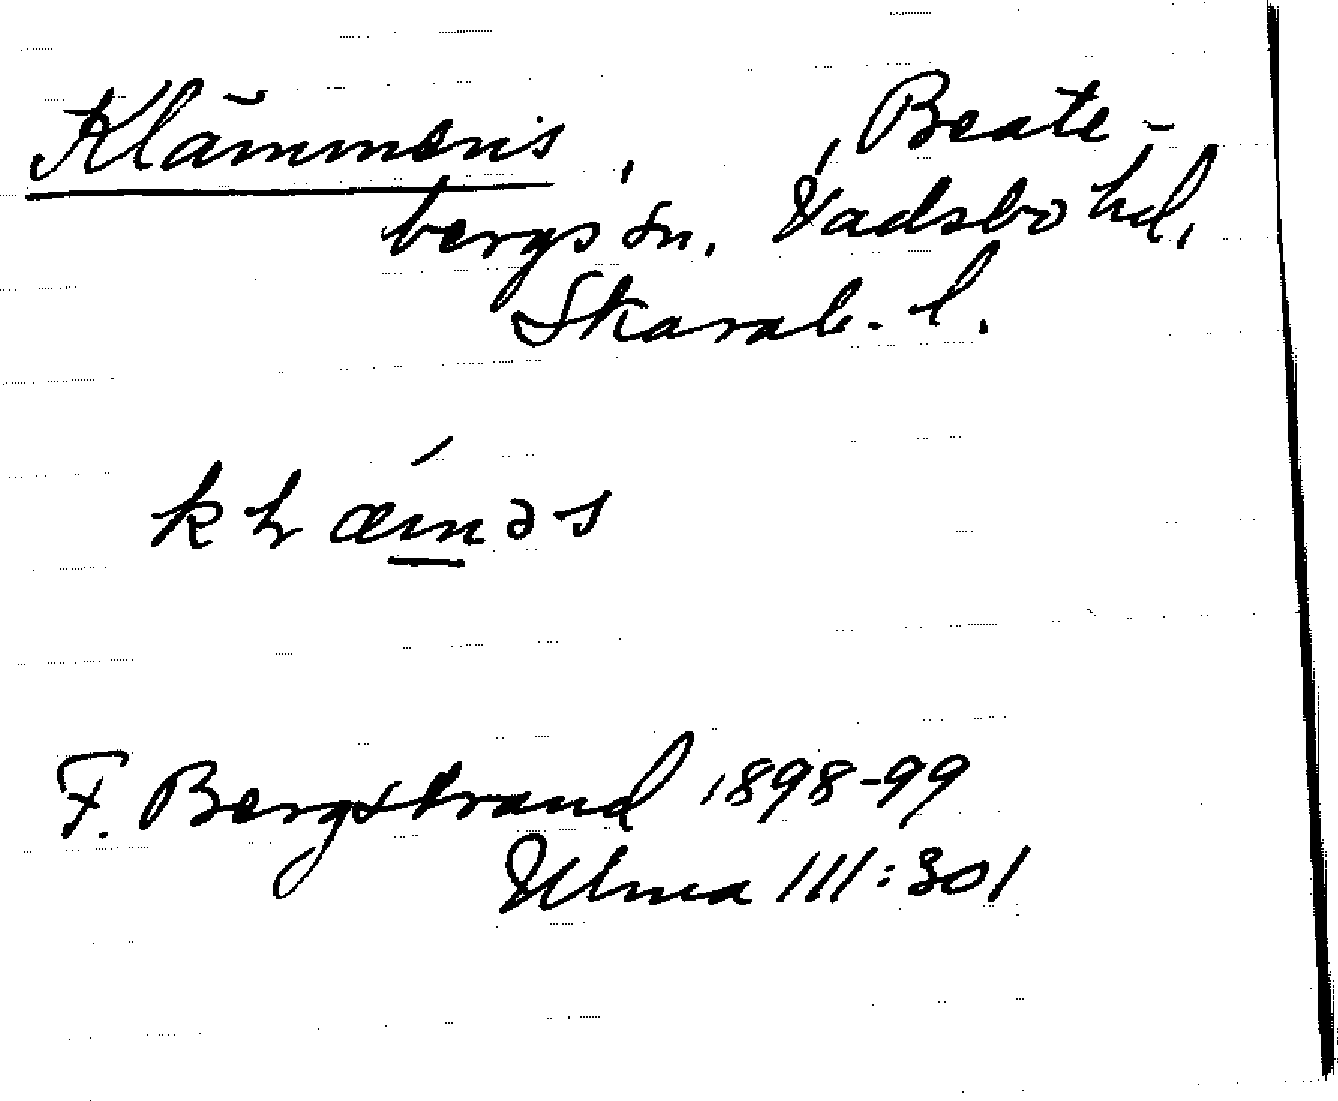 Klämmens, , Beate-
bergs sn. Vadsbo hd,
Skarab. l.
F. Bergstrand 1898-99
Ulma 111:301